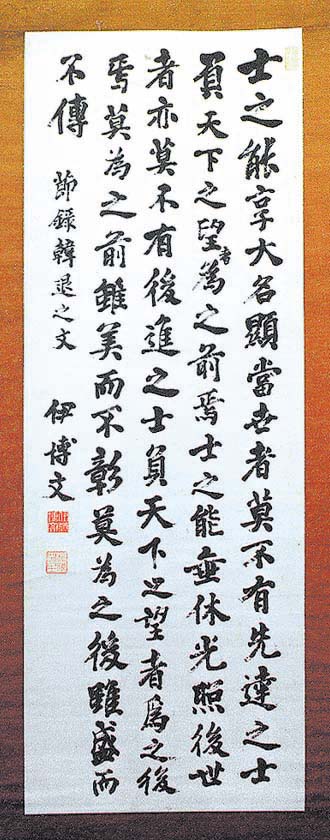 士之能享大名顕當世者莫不有先達之士
負天下之望者為之前焉士之能垂休光照後世
者亦莫不有後進之士負天下之望者為之後
焉莫為之前雖美而不彰莫為之後雖盛而
不傳 節録韓退之文 伊博文